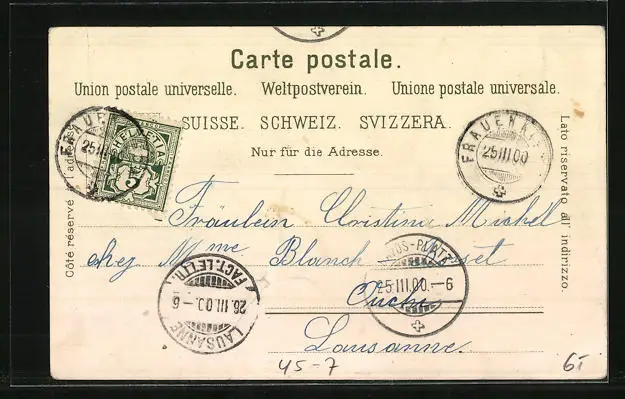 Carte postale.
Union postale universelle. Weltpostverein. Unione postale universale.
SUISSE. SCHWEIZ. SVIZZERA.
Nur für die Adresse.
Côté réservé à l'adresse
Lato riservato all' indirizzo.
HELVETIA
5
FRAUENK
25 III 00
FRAUE
25 III
Fräulein Christina Michel
chez Mme Blanch
Ouchy
Lausanne.
OS-PLATZ
25 III.00.-6
LAUSANNE
26.III.00.-6
FACT.LETTR.
45-7